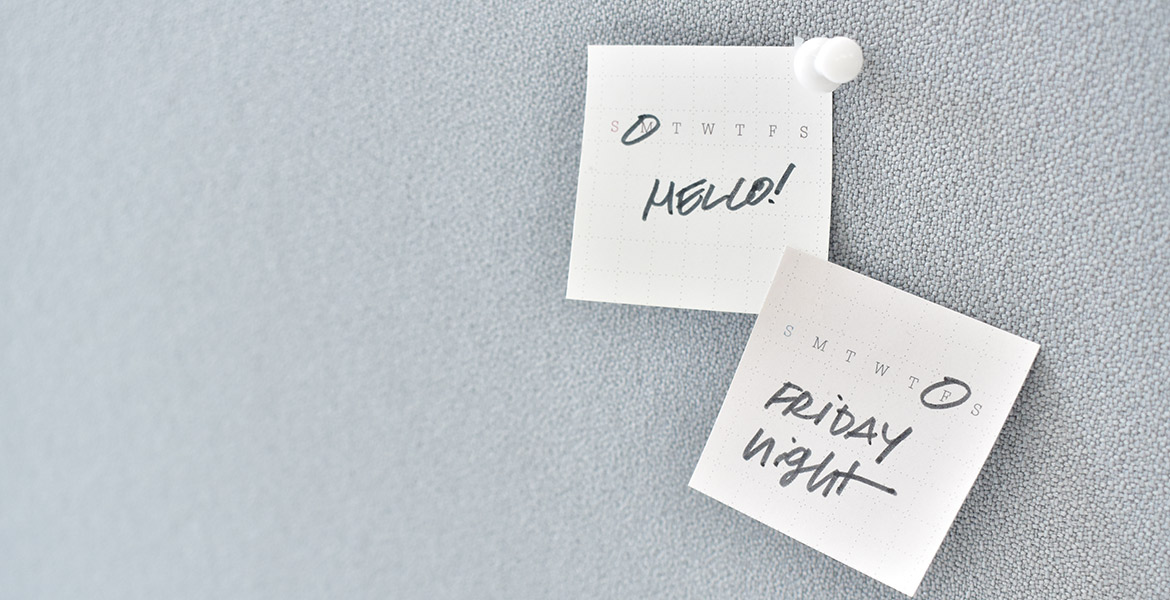 S M T W T F S
MELLO!
S M T W T F S
FRiDAY
night